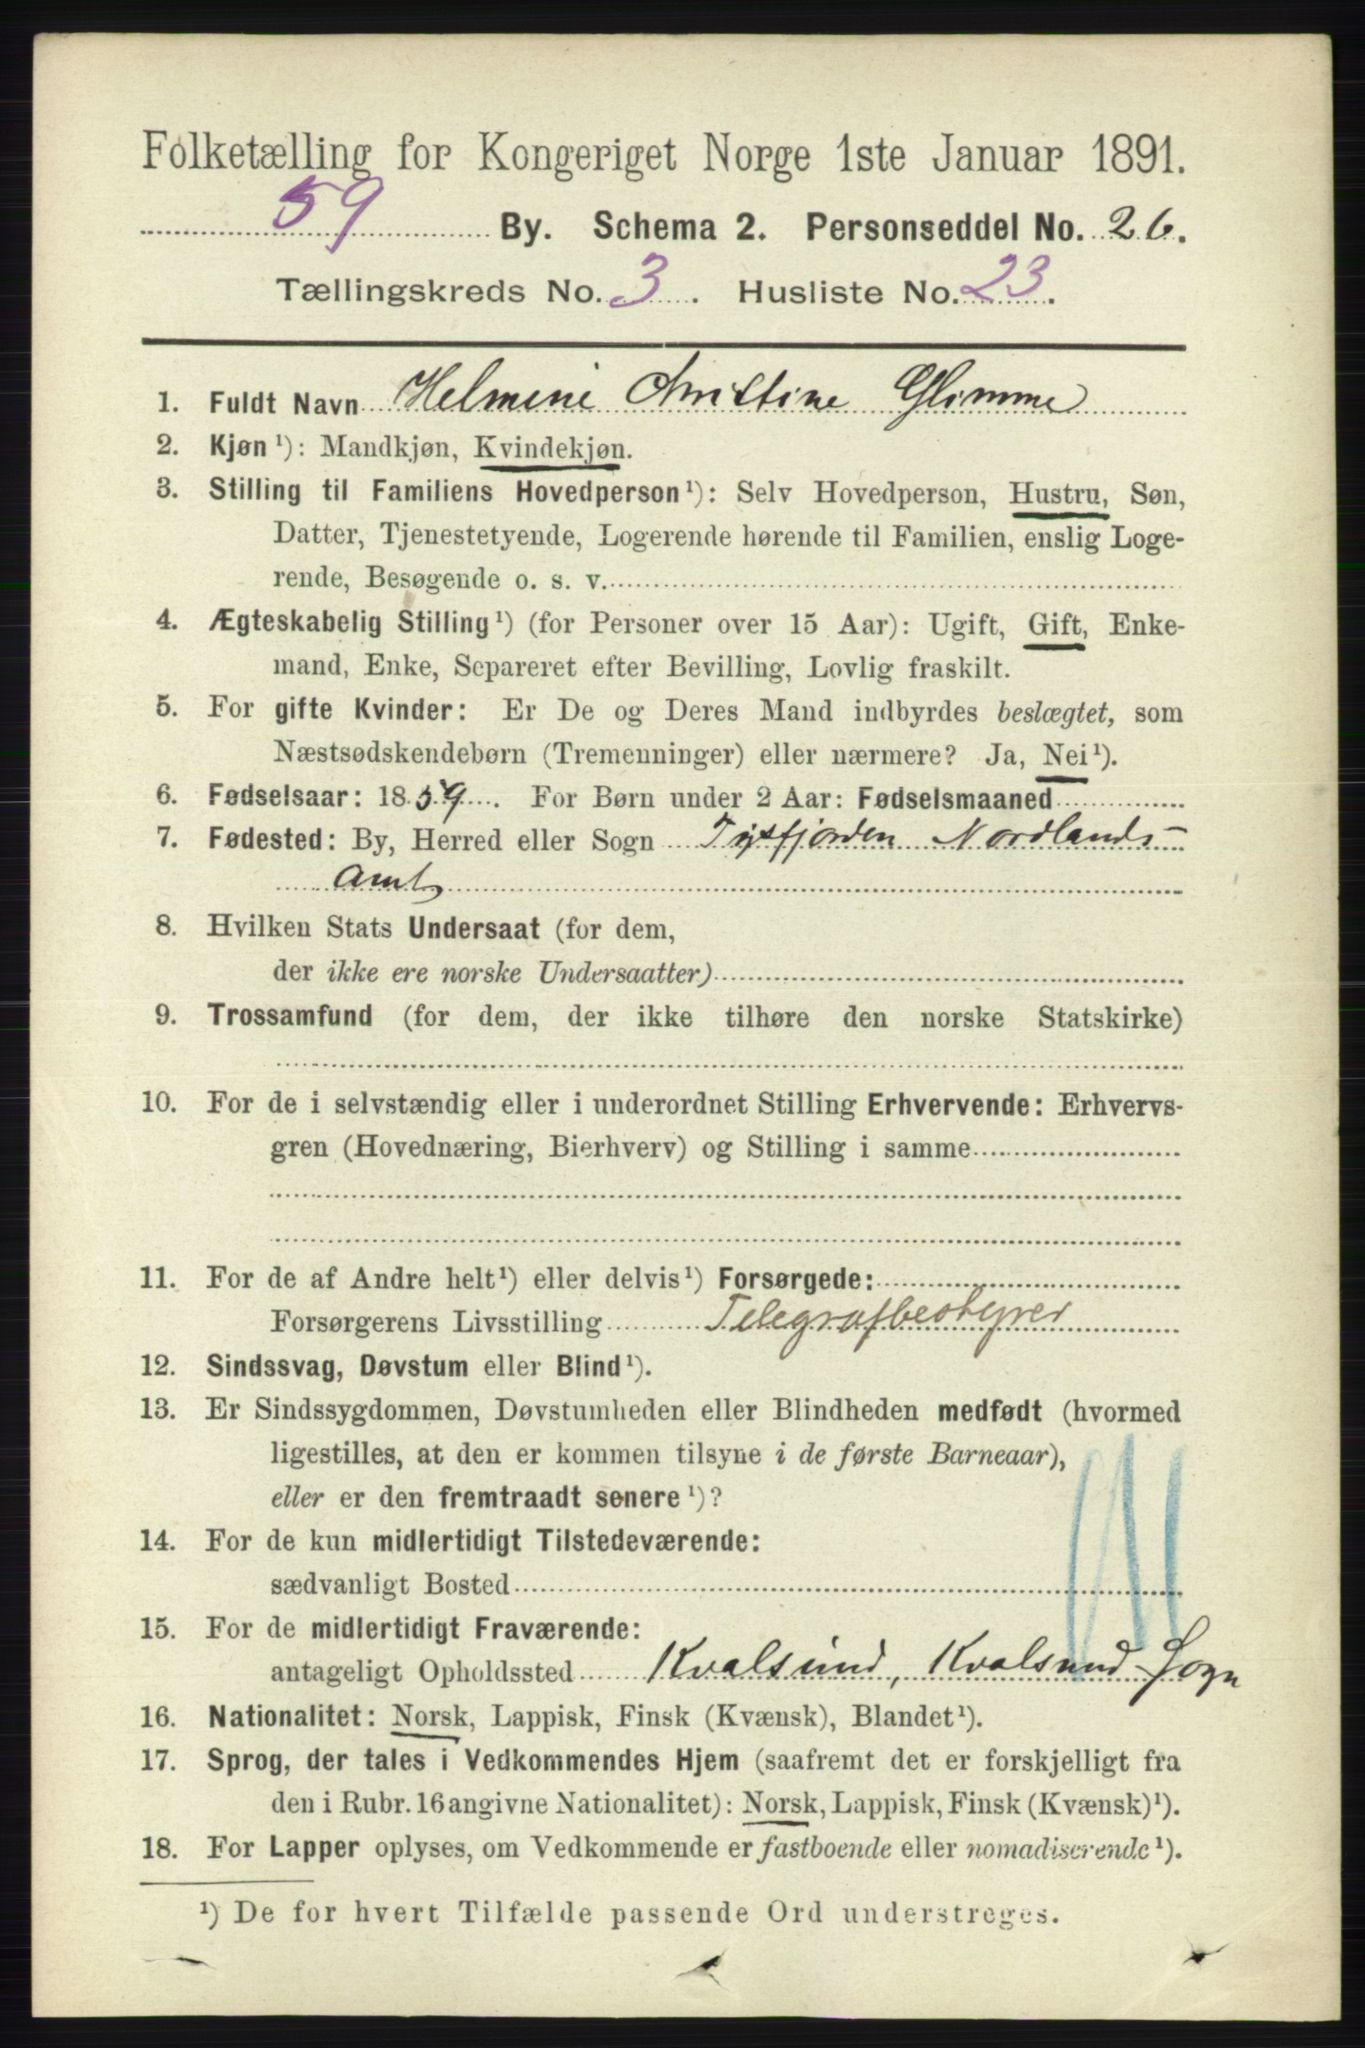 Folketælling for Kongeriget Norge 1ste Januar 1891.
59 By. Schema 2. Personseddel No. 26.
Tællingskreds No. 3. Husliste No. 23.
1. Fuldt Navn Helmine Christine Glimme
2. Kjøn ¹): Mandkjøn, Kvindekjøn.
3. Stilling til Familiens Hovedperson¹): Selv Hovedperson, Hustru, Søn,
Datter, Tjenestetyende, Logerende hørende til Familien, enslig Loge-
rende, Besøgende o. s. v.
4. Ægteskabelig Stilling¹) (for Personer over 15 Aar): Ugift, Gift, Enke-
mand, Enke, Separeret efter Bevilling, Lovlig fraskilt.
5. For gifte Kvinder: Er De og Deres Mand indbyrdes beslægtet, som
Næstsødskendebørn (Tremenninger) eller nærmere? Ja, Nei¹).
6. Fødselsaar: 1859. For Børn under 2 Aar: Fødselsmaaned
7. Fødested: By, Herred eller Sogn Tysfjorden Nordlands-
Amt
8. Hvilken Stats Undersaat (for dem,
der ikke ere norske Undersaatter)
9. Trossamfund (for dem, der ikke tilhøre den norske Statskirke)
10. For de i selvstændig eller i underordnet Stilling Erhvervende: Erhvervs-
gren (Hovednæring, Bierhverv) og Stilling i samme
11. For de af Andre helt¹) eller delvis¹) Forsørgede:
Forsørgerens Livsstilling Telegrafbestyrer
12. Sindssvag, Døvstum eller Blind¹).
13. Er Sindssygdommen, Døvstumheden eller Blindheden medfødt (hvormed
ligestilles, at den er kommen tilsyne i de første Barneaar),
eller er den fremtraadt senere¹)?
14. For de kun midlertidigt Tilstedeværende:
sædvanligt Bosted
15. For de midlertidigt Fraværende:
antageligt Opholdssted Kvalsund, Kvalsund Sogn
16. Nationalitet: Norsk, Lappisk, Finsk (Kvænsk), Blandet¹).
17. Sprog, der tales i Vedkommendes Hjem (saafremt det er forskjelligt fra
den i Rubr. 16 angivne Nationalitet): Norsk, Lappisk, Finsk (Kvænsk)¹).
18. For Lapper oplyses, om Vedkommende er fastboende eller nomadiserende¹).
¹) De for hvert Tilfælde passende Ord understreges.